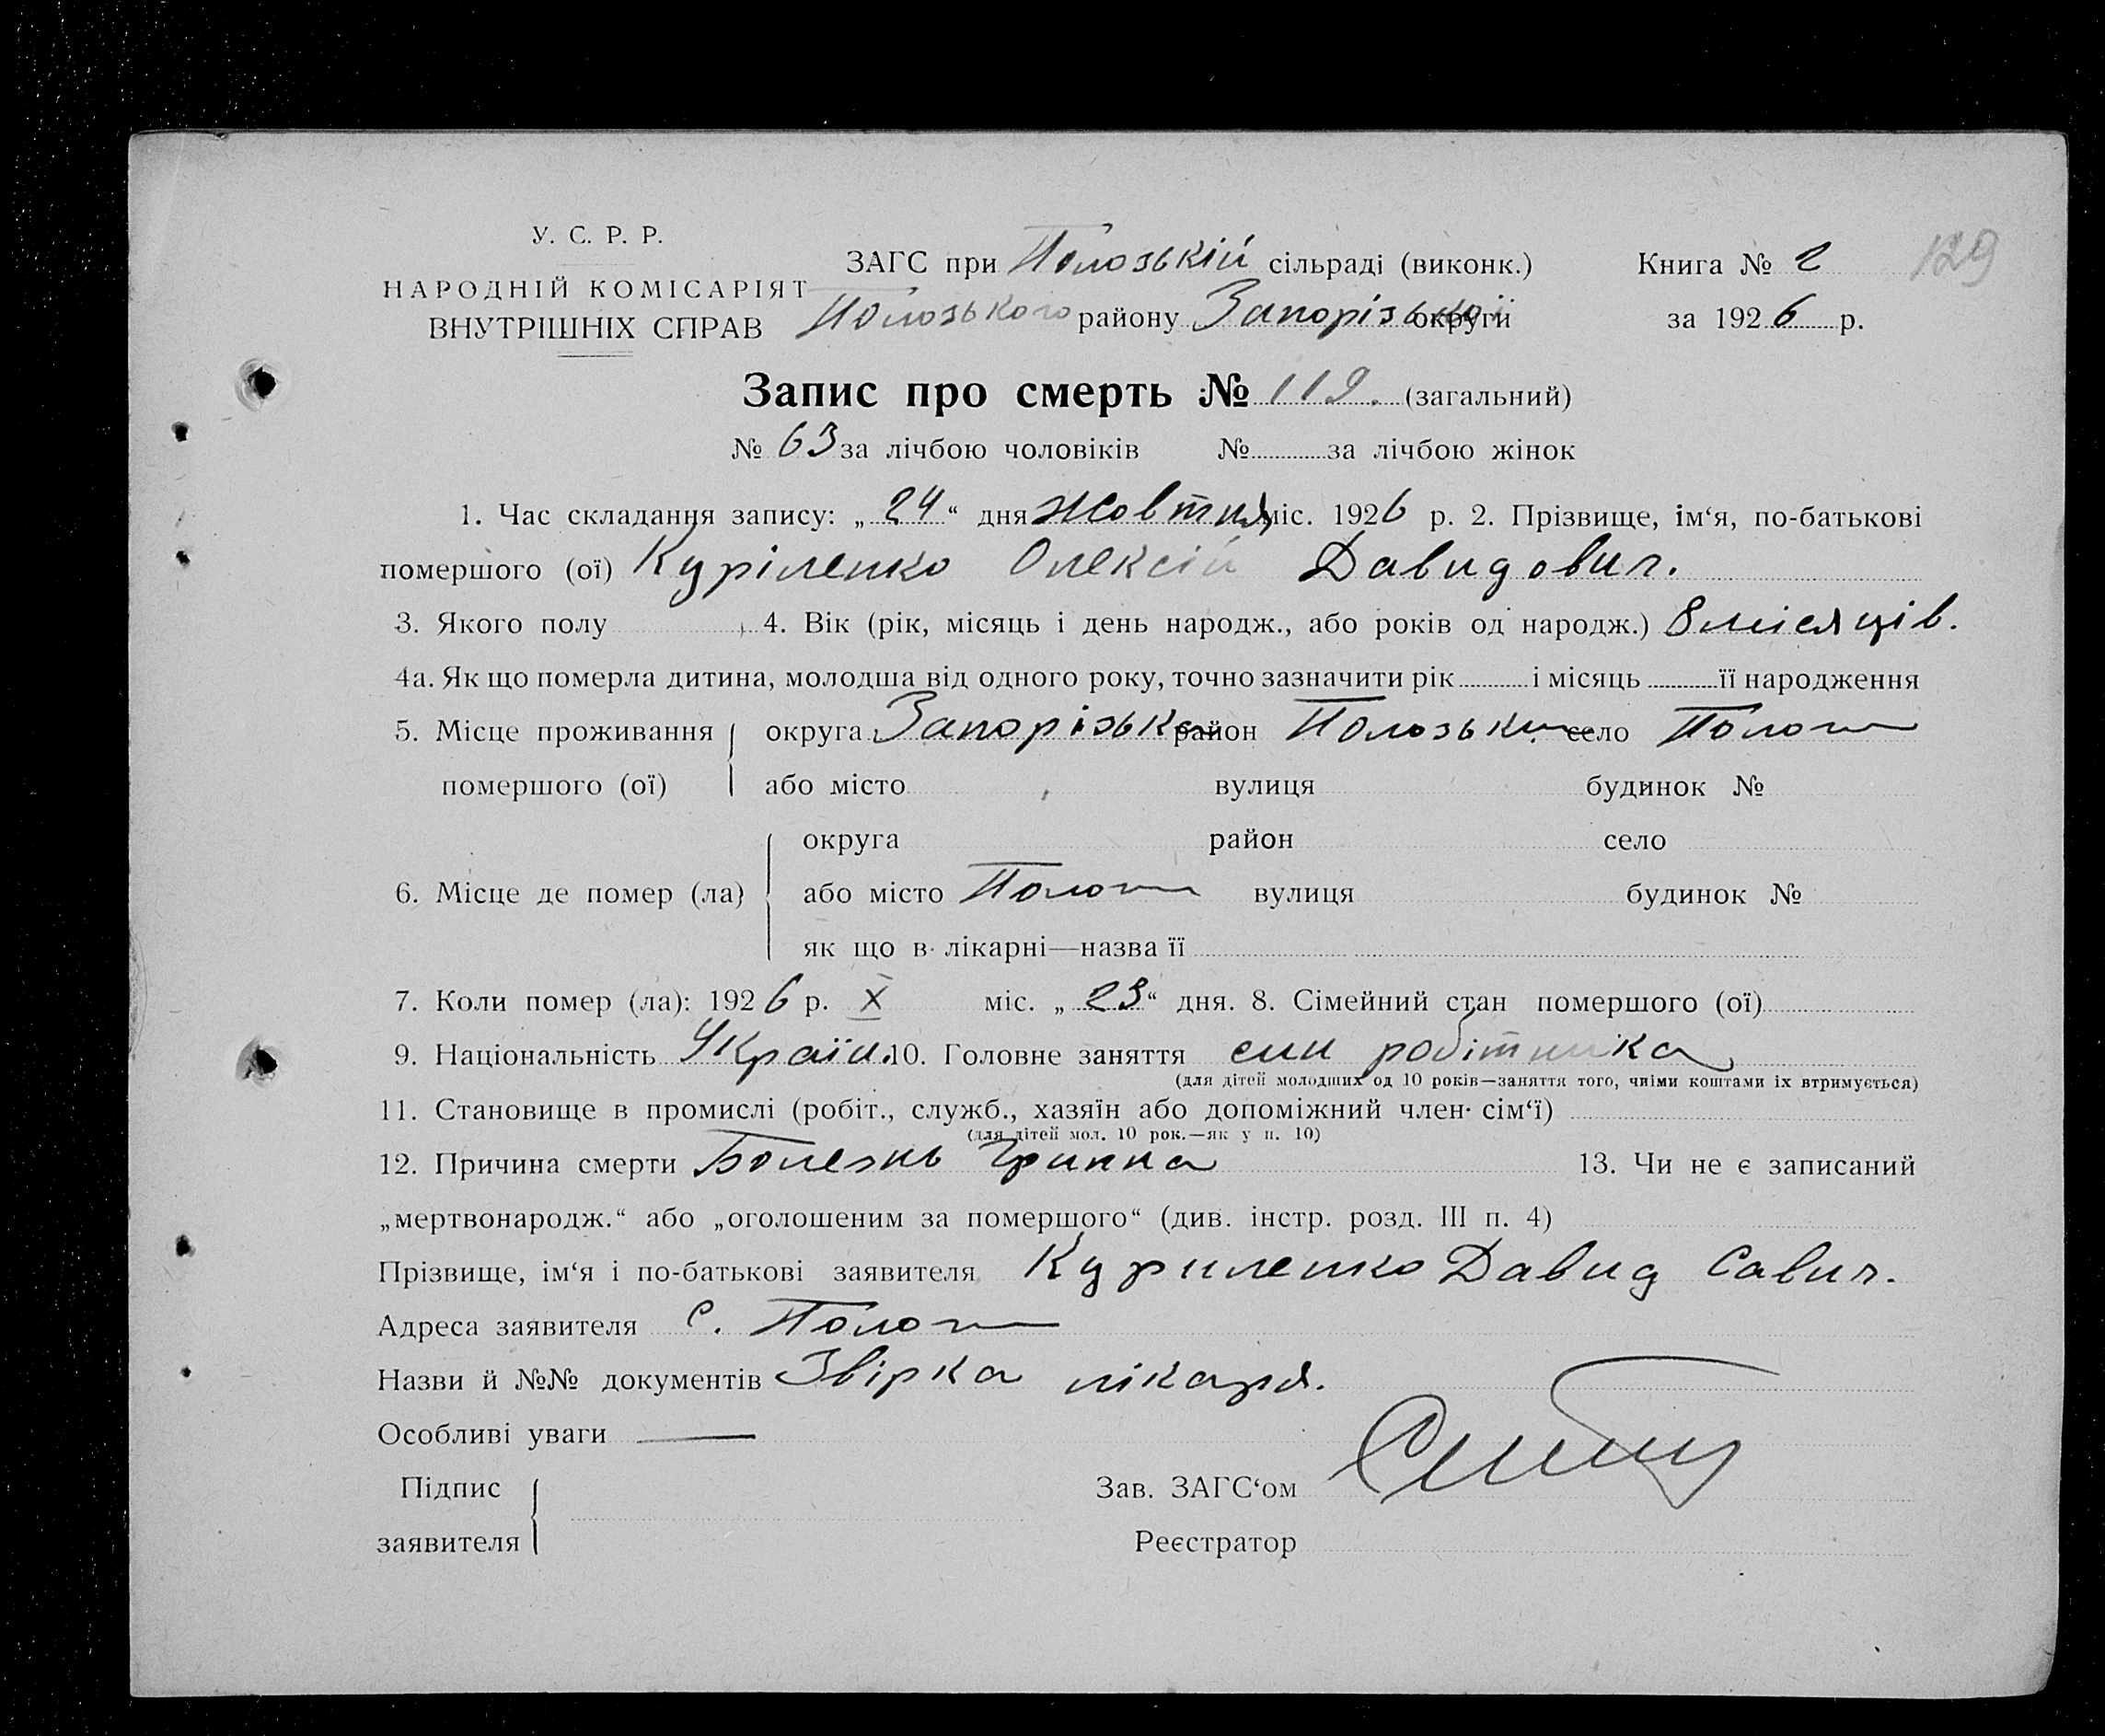 У. С. Р. Р.
НАРОДНІЙ КОМІСАРІЯТ
ВНУТРІШНІХ СПРАВ
ЗАГС при Пологській сільраді (виконк.)
Пологського району Запорізької округи
Книга № 2
129
за 1926 р.
Запис про смерть № 119. (загальний)
№ 63 за лічбою чоловіків № за лічбою жінок
1. Час складання запису: „24“ дня Жовтня міс. 1926 р. 2. Прізвище, ім‘я, по-батькові
помершого (ої) Куріленко Олексій Давидович.
3. Якого полу 4. Вік (рік, місяць і день народж., або років од народж.) 8 місяців.
4а. Як що померла дитина, молодша від одного року, точно зазначити рік і місяць її народження
5. Місце проживання округа Запорізька район Полозьки село Пологи
помершого (ої) або місто вулиця будинок №
округа район село
6. Місце де помер (ла) або місто Пологи вулиця будинок №
як що в лікарні—назва її
7. Коли помер (ла): 1926 р. X міс. „23“ дня. 8. Сімейний стан помершого (ої)
9. Національність Україн. 10. Головне заняття син робітника
(для дітей молодших од 10 років—заняття того, чиїми коштами їх втримується)
11. Становище в промислі (робіт., служб., хазяїн або допоміжний член сім‘ї)
(для дітей мол. 10 рок.—як у п. 10)
12. Причина смерти Болезнь Гриппа 13. Чи не є записаний
„мертвонародж.“ або „оголошеним за помершого“ (див. інстр. розд. III п. 4)
Прізвище, ім‘я і по-батькові заявителя Куриленко Давид Савич.
Адреса заявителя с. Пологи
Назви й №№ документів Звірка лікаря.
Особливі уваги —
Підпис
заявителя
Зав. ЗАГС‘ом
Реєстратор